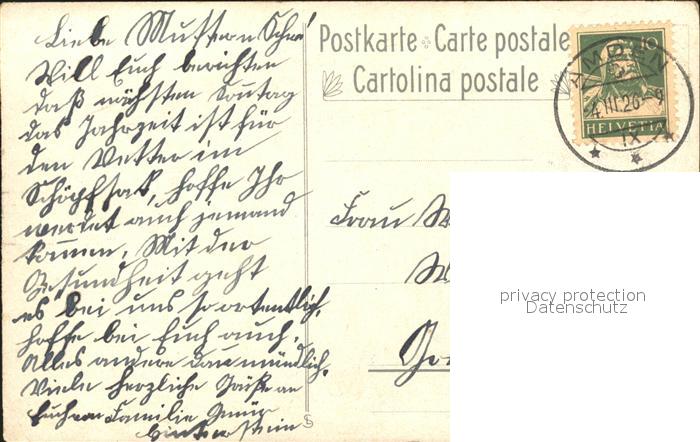 Liebe Mutter u Schw!
Will Euch berichten
daß nächsten Sonntag
das Jahrzeit ist für
den Vetter im
hoffe Ihr
werdet auch jemand
kommen, Mit der
Gesundheit geht
es bei uns so ordentlich,
hoffe bei Euch auch.
Alles andere dann mündlich.
Viele herzliche Grüße an
Euch von Familie
Postkarte Carte postale
Cartolina postale
10
AMDEN
4.III.26-9
IX
HELVETIA
Frau
privacy protection
Datenschutz